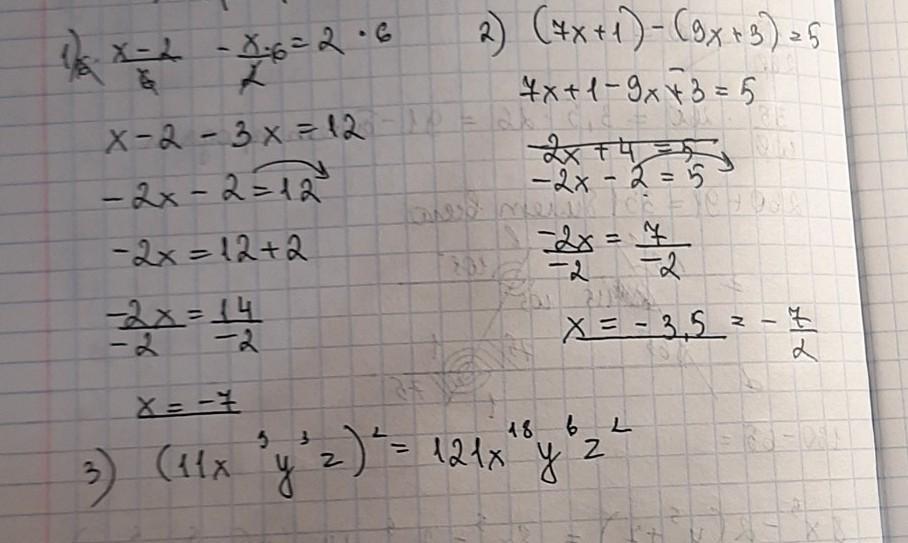 1) 6· x-2/6 - x/2 ·6 = 2 · 6
x - 2 - 3x = 12
-2x - 2 = 12
-2x = 12 + 2
-2x/-2 = 14/-2
x = -7
2) (7x+1) - (9x+3) = 5
7x + 1 - 9x - 3 = 5
2x + 4 = 5
-2x - 2 = 5
-2x/-2 = 7/-2
x = -3,5 = -7/2
3) (11x⁹y³z)² = 121x¹⁸y⁶z²